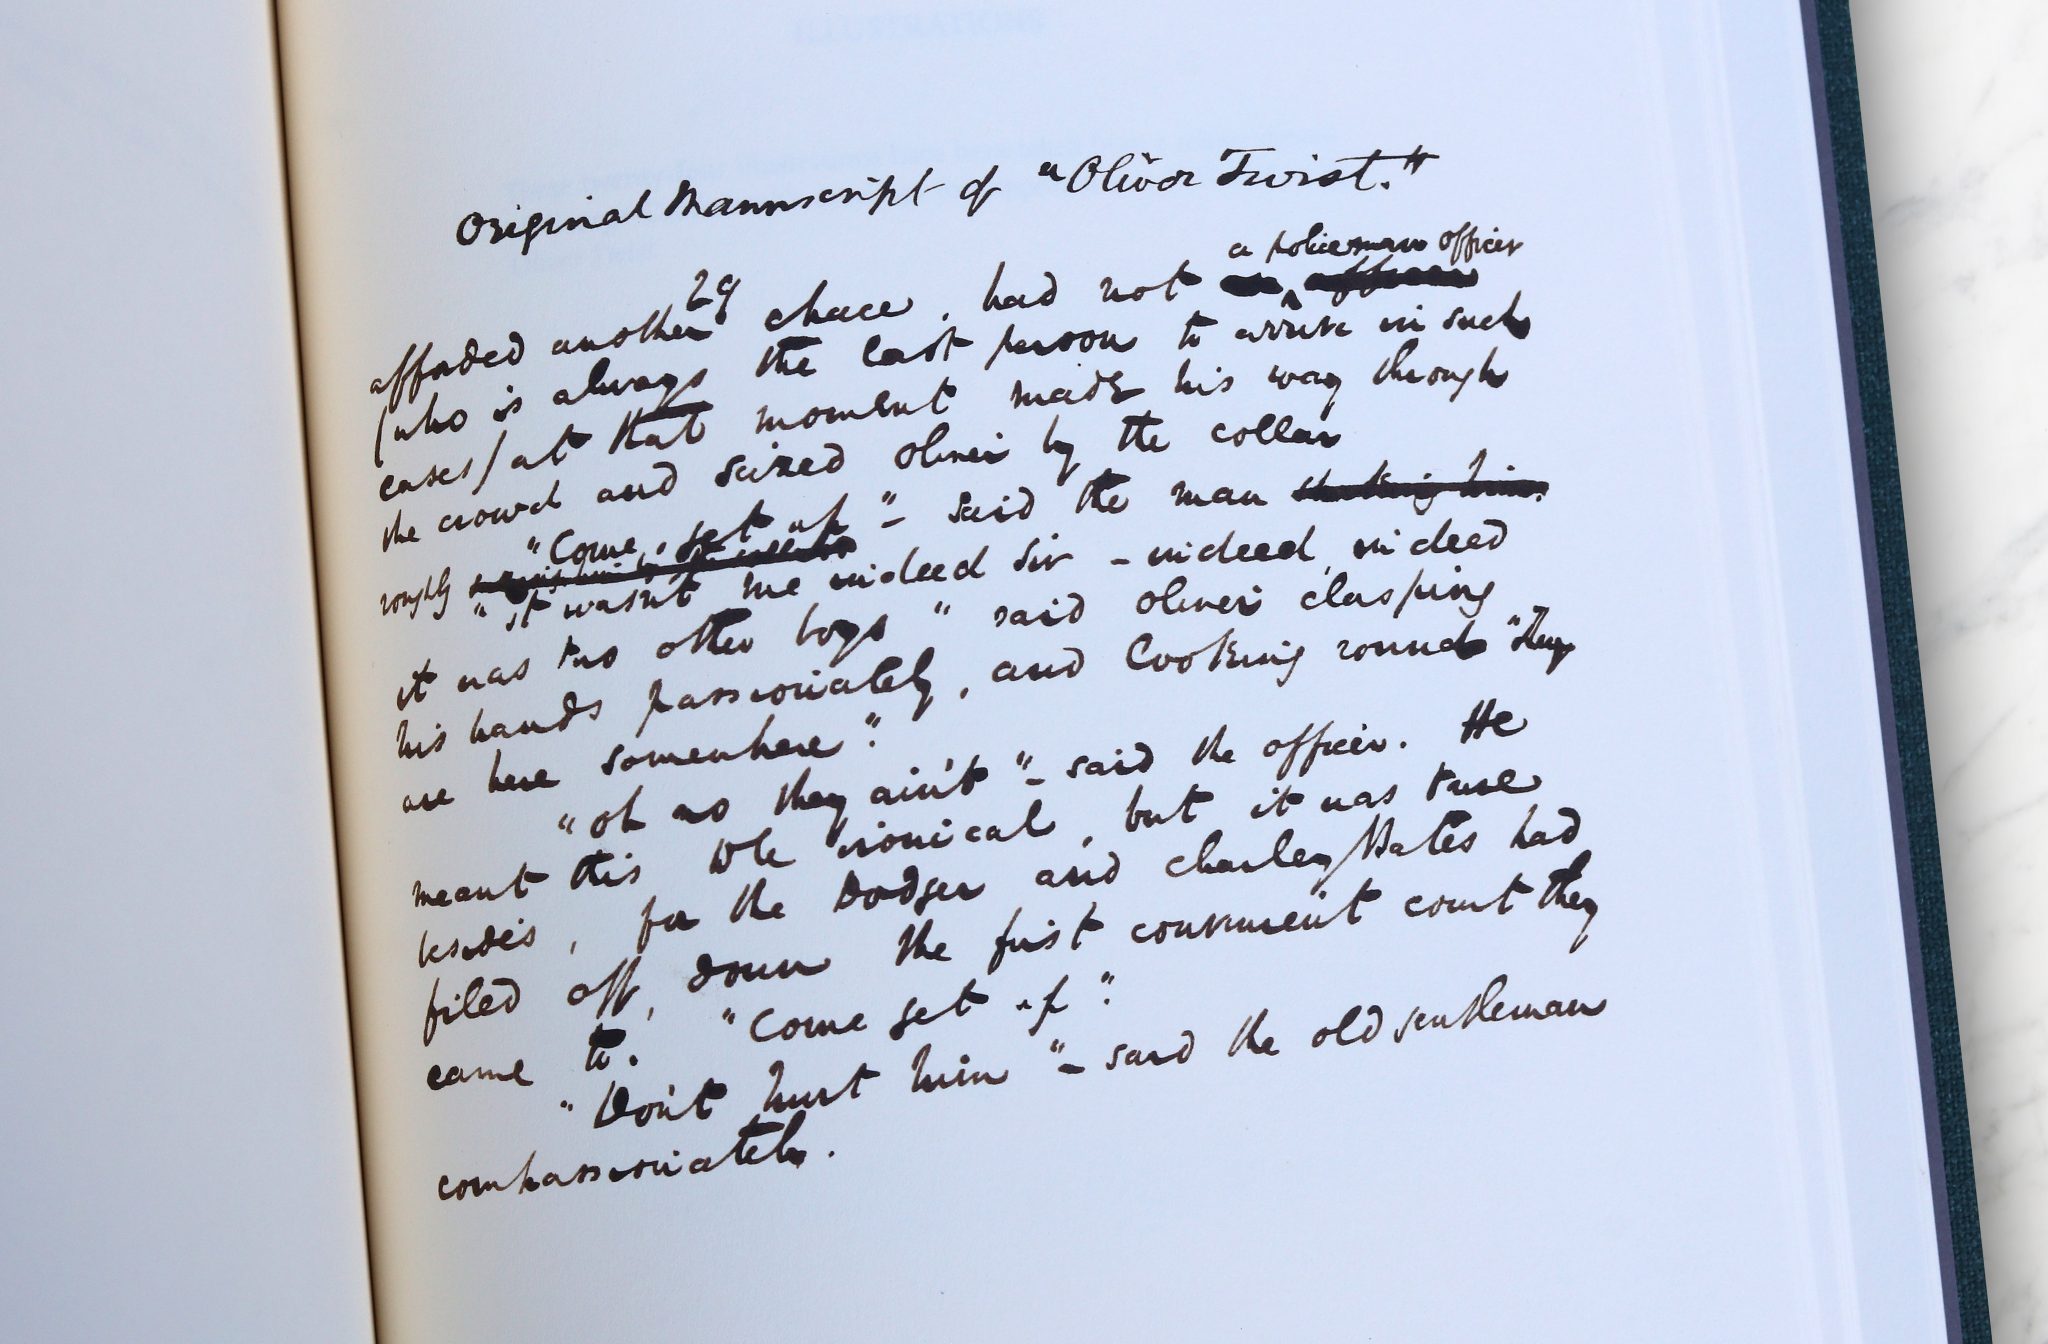 ILLUSTRATIONS
Original Manuscript of "Oliver Twist."
29
a policeman officer
afforded another chace, had not
(who is always the last person to arrive in such
cases) at that moment made his way through
the crowd and seized Oliver by the collar
"Come, get up" – said the man
roughly
"it wasn't me indeed Sir – indeed, indeed
it was two other boys" said Oliver clasping
his hands passionately, and looking round "They
are here somewhere".
"Oh no they ain't" – said the officer. He
meant this to be ironical, but it was true
besides, for the Dodger and Charley Bates had
filed off, down the first convenient court they
came to. "Come get up".
"Don't hurt him" – said the old gentleman
compassionately.